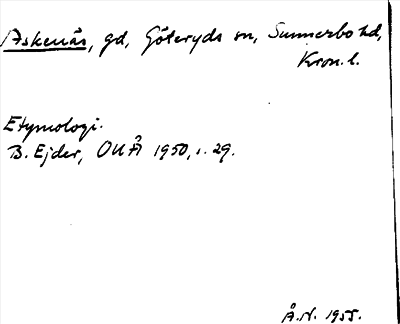 Askenäs, gd, Göteryds sn, Sunnerbo hd,
Kron. l.
Etymologi.
B. Ejder, OUÅ 1950, s. 29.
Å.N. 1955.